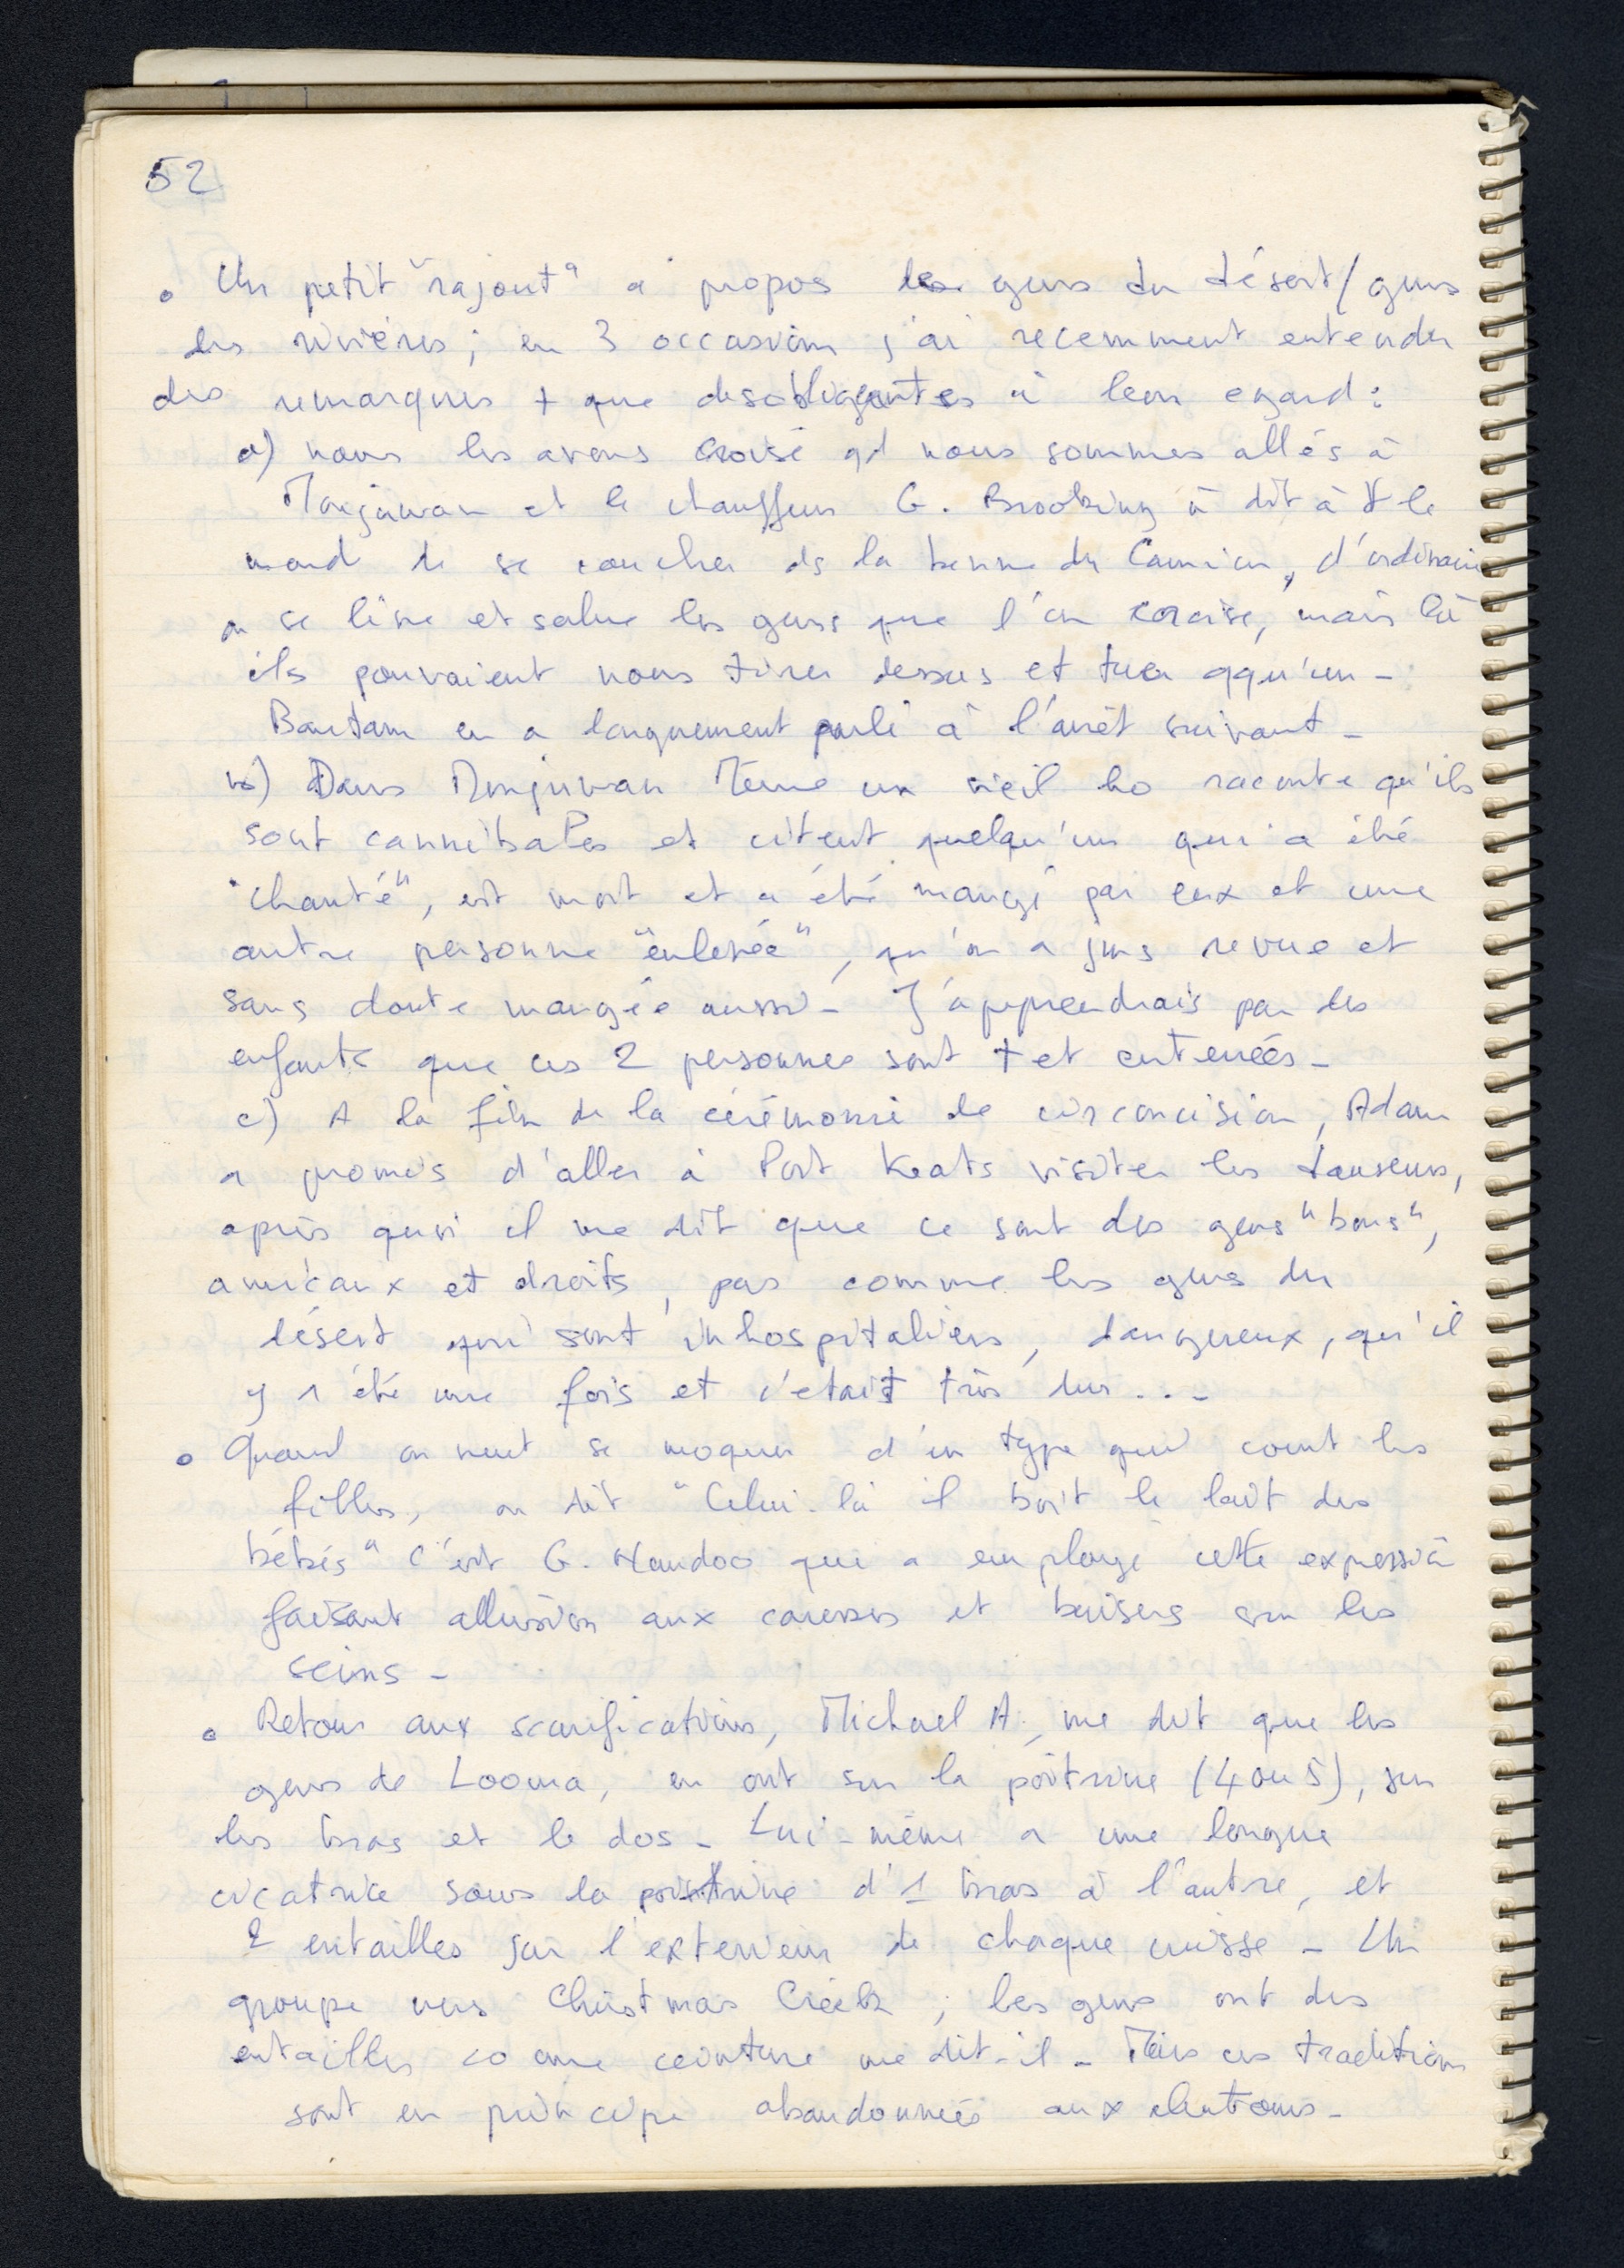 52
• Un petit "rajout" a propos des gens du désert/gens
des rivières ; en 3 occasions j'ai recemment entendu
des remarques + que desobligeantes à leur egard :
a) nous les avons croisé qd nous sommes allés à
et le chauffeur G. Brooking à dit à le
mond de se coucher ds la benne du Camion, d'ordinaire
on se lève et salue les gens que l'on croise, mais là
ils pouvaient nous tirer dessus et tuer qqu'un -
Bantam en a longuement parlé à l'arrêt suivant -
b) Dans même un vieil ho raconte qu'ils
sont cannibales et citent quelqu'un qui a été
"chanté", est mort et a été mangé par eux et une
autre personne "enlevée", qu'on a jms revue et
sans doute mangée aussi - J'apprendrais par les
enfants que ces 2 personnes sont + et enterrées -
c) A la fin de la cérémonie de circoncision, Adam
a promis d'aller à Port Keats visiter les danseurs,
après quoi il me dit que ce sont des gens "bons",
amicaux et droits, pas comme les gens du
désert qui sont inhospitaliers, dangereux, qu'il
y a été une fois et c'etait très dur...
• Quand on veut se moquer d'un type qui court les
filles, on dit "Celui-là il boit le lait des
bébés" c'est G. Nandoo qui a employé cette expression
faisant allusion aux caresses et baisers sur les
seins -
• Retour aux scarifications, Michael A. me dit que les
gens de Looma, en ont sur la poitrine (4 ou 5), sur
les bras et le dos - Lui-même a une longue
cicatrice sous la poitrine d'1 bras à l'autre, et
2 entailles sur l'exterieur de chaque cuisse - Un
groupe vers Christmas Creek ; les gens ont des
entailles co une ceinture me dit-il - Mais ces traditions
sont en principe abandonnées aux alentours -